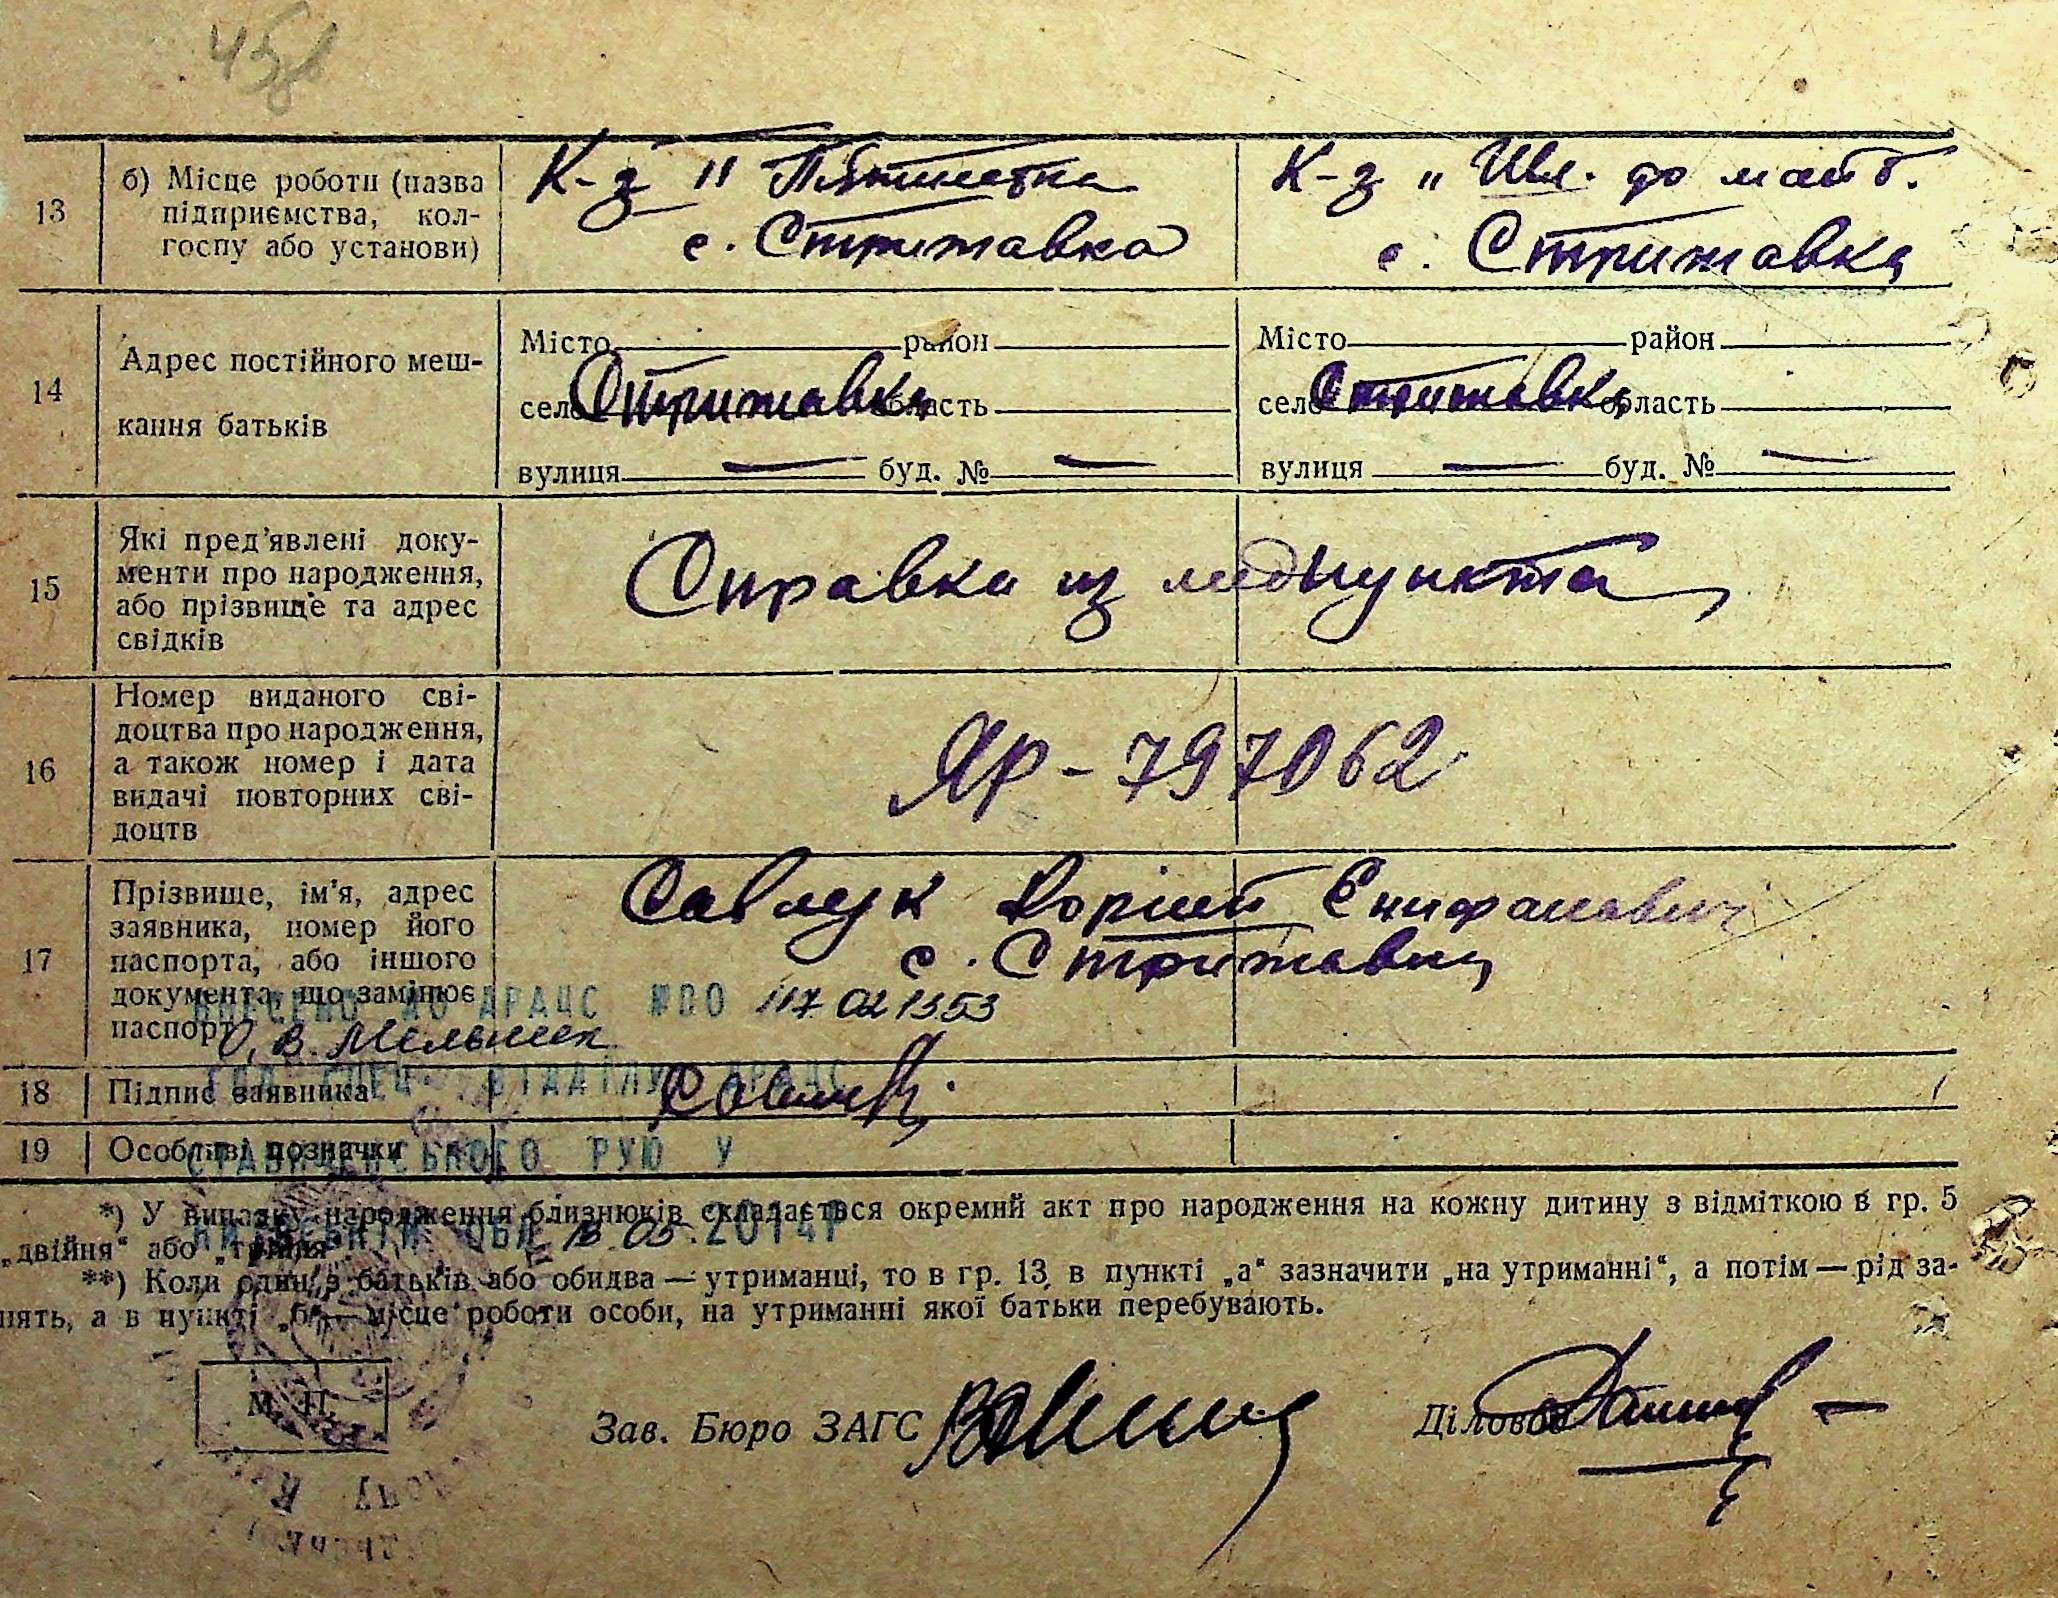 45зв
13 б) Місце роботи (назва К-з " Пятилетка К-з " Шл. до майб.
підприємства, кол- с. Стрижавка с. Стрижавка
госпу або установи)
14 Адрес постійного меш-
кання батьків
Місто район Місто район
село Стрижавка область село Стрижавка область
вулиця — буд. № — вулиця — буд. № —
15 Які пред'явлені доку-
менти про народження, Справка из медпункта
або прізвище та адрес
свідків
16 Номер виданого сві-
доцтва про народження,
а також номер і дата ЯР - 797062
видачі повторних сві-
доцтв
17 Прізвище, ім'я, адрес Савлук Єпифанович
заявника, номер його
паспорта, або іншого с. Стрижавка
документа, що замінює
паспорт
ВНЕСЕНО ДО ДРАЦС ЮПО 117021353
О. В. Мельник
18 Підпис заявника
ГОЛ СПЕЦ. ВІДДІЛУ ДРАЦС
19 Особливі позначки
СТАВИЩЕНСЬКОГО РУЮ У
*) У випадку народження близнюків складається окремий акт про народження на кожну дитину з відміткою в гр. 5
„двійня“ або „трійня“.
КИЇВСЬКІЙ ОБЛ 05. 2014Р
**) Коли один з батьків або обидва — утриманці, то в гр. 13, в пункті „а“ зазначити „на утриманні“, а потім — рід за-
нять, а в пункті „б“ — місце роботи особи, на утриманні якої батьки перебувають.
М. П.
Зав. Бюро ЗАГС Діловод